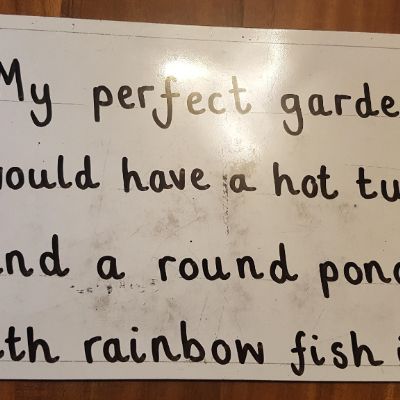 My perfect garde
would have a hot tu
and a round pond
ith rainbow fish i